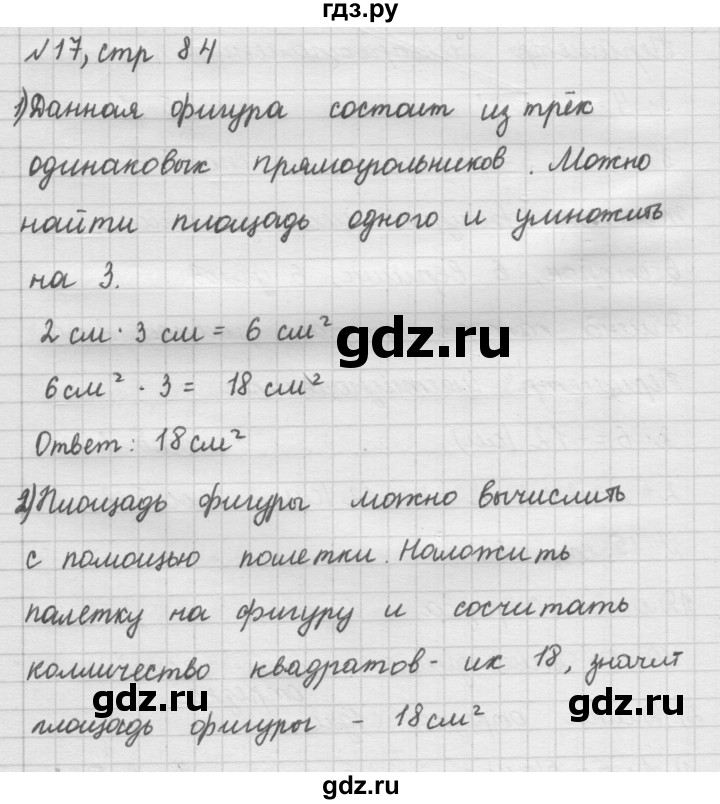 гдз.ру
№17, стр 84
1) Данная фигура состоит из трёх
одинаковых прямоугольников. Можно
найти площадь одного и умножить
на 3.
2 см · 3 см = 6 см²
gdz.ru
6см² · 3 = 18 см²
Ответ: 18см²
2) Площадь фигуры можно вычислить
с помощью палетки. Наложить
палетку на фигуру и сосчитать
колличество квадратов - их 18, значит
gdz.ru
gdz.ru
площадь фигуры - 18см²
gdz.ru